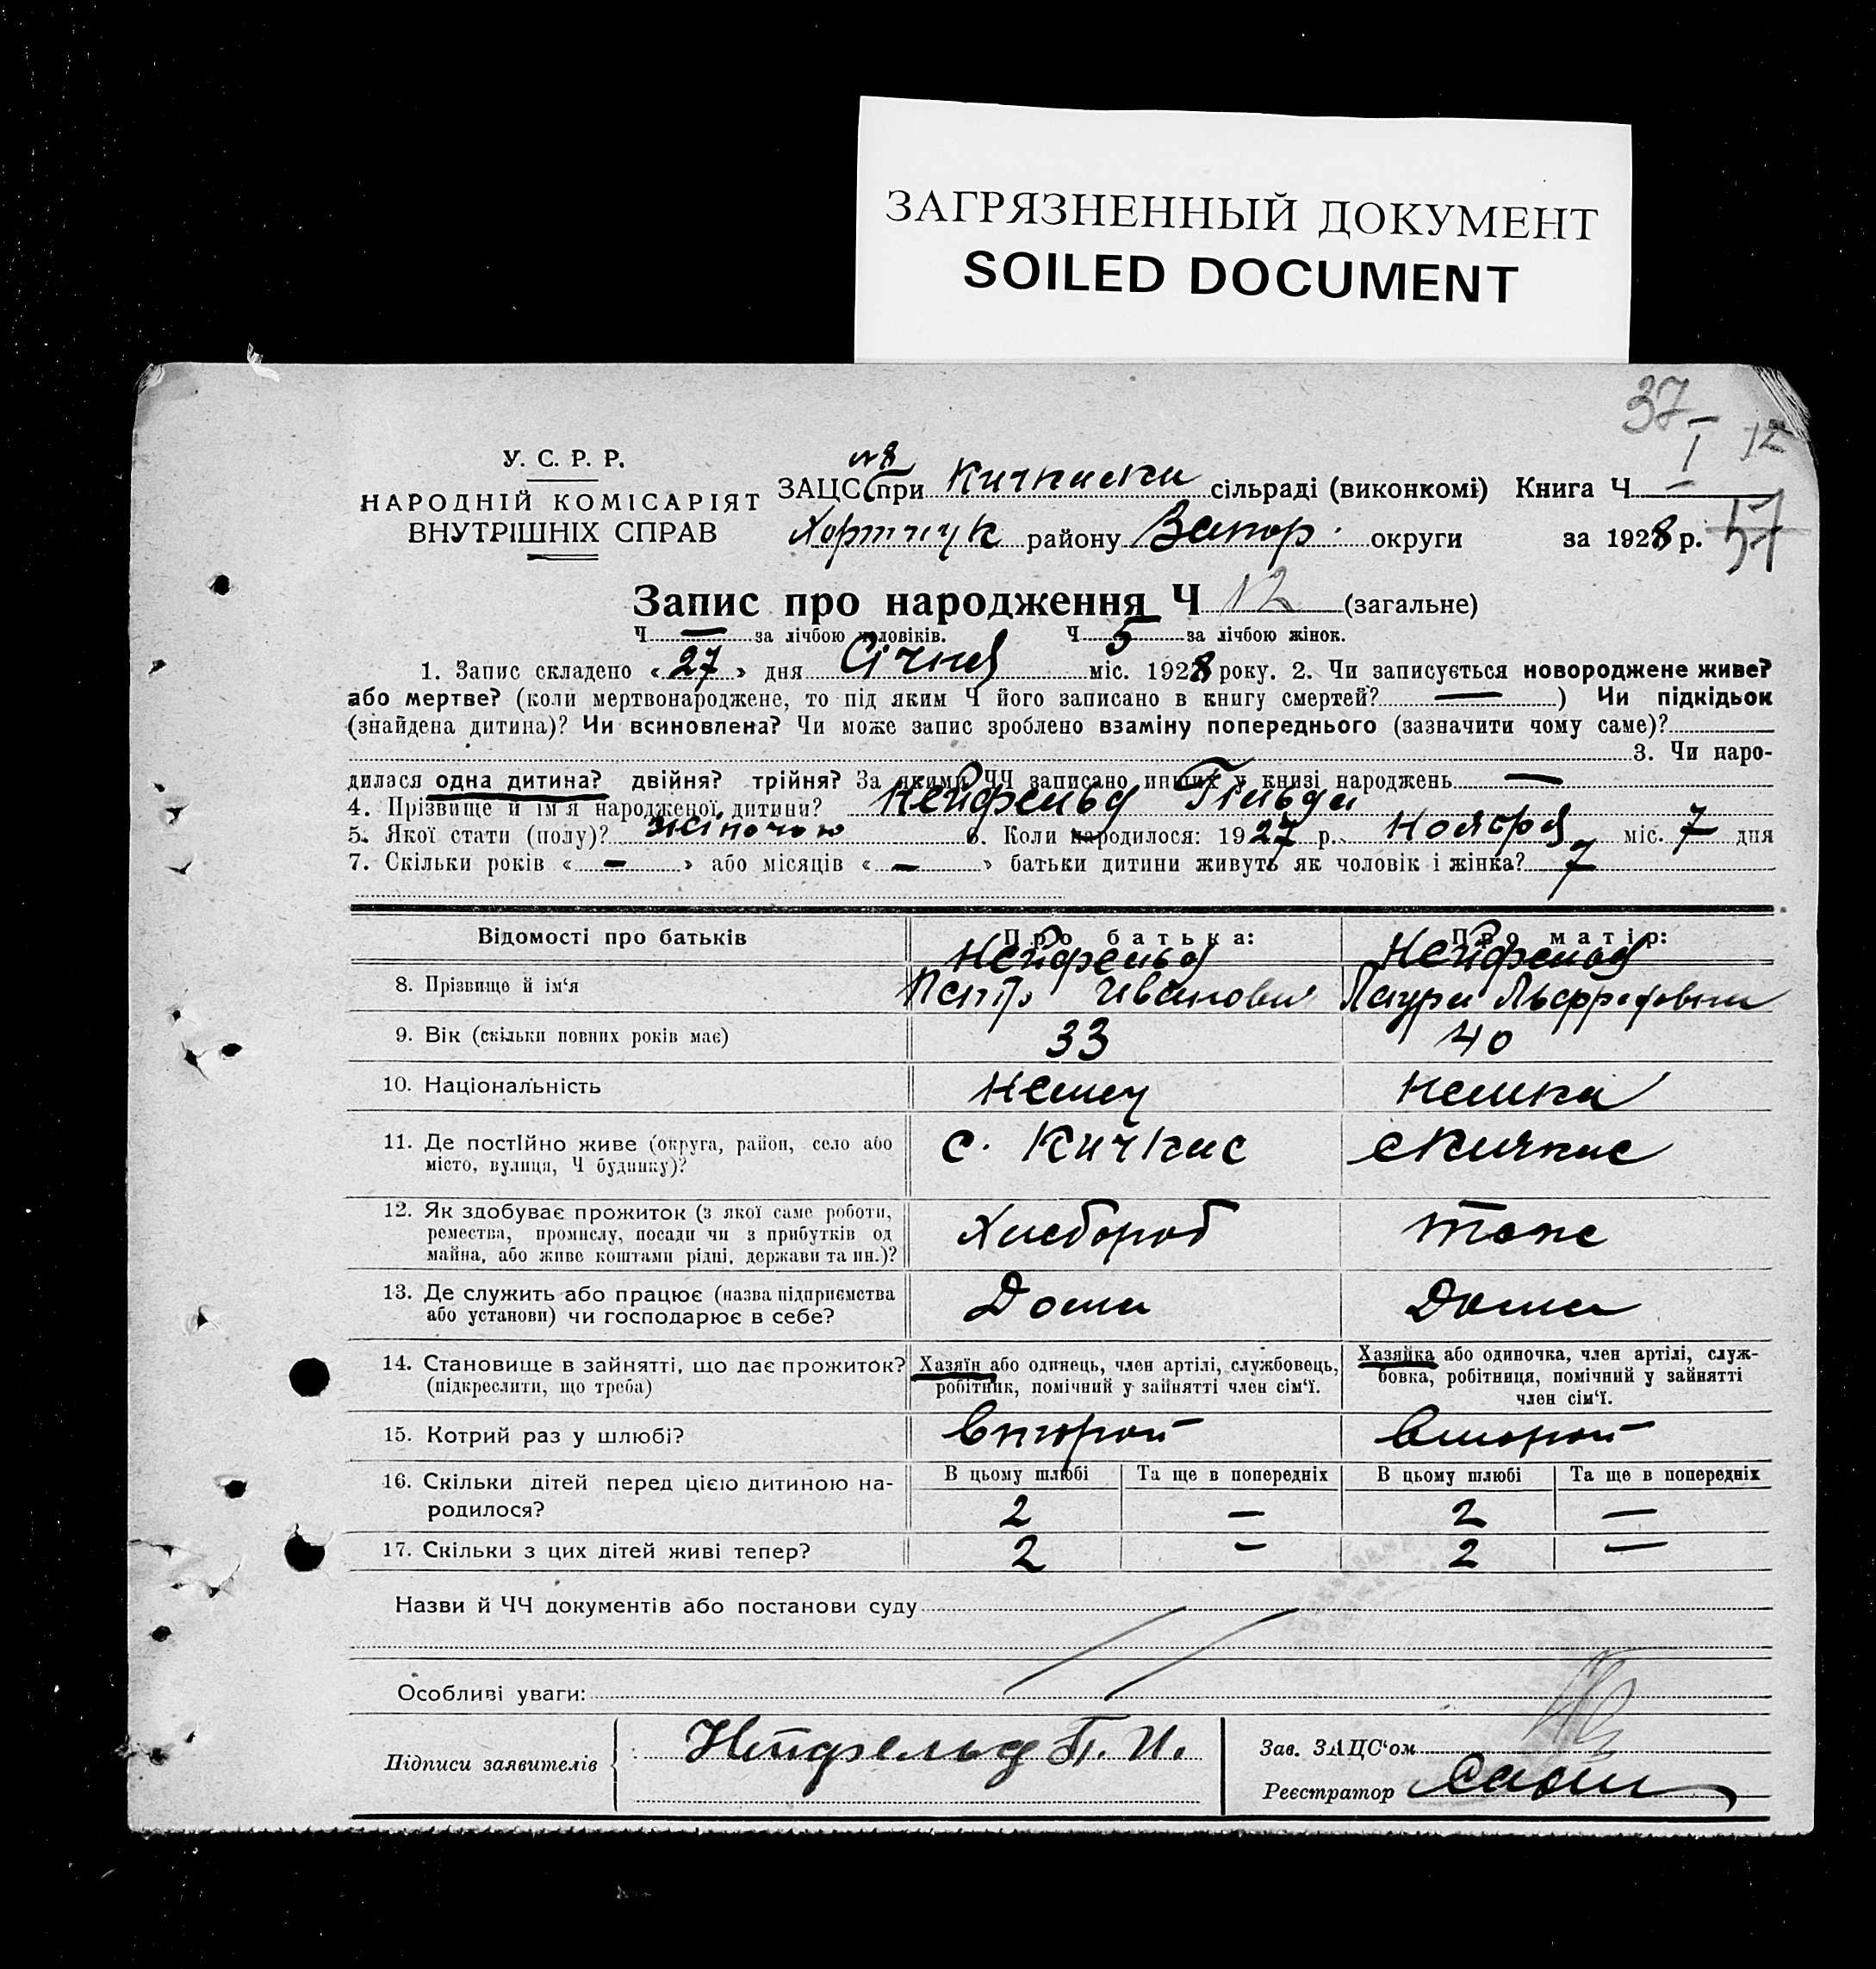 ЗАГРЯЗНЕННЫЙ ДОКУМЕНТ
SOILED DOCUMENT
37
I 12
У. С. Р. Р.
НАРОДНІЙ КОМІСАРІЯТ
ВНУТРІШНІХ СПРАВ
№ 8
ЗАЦС при Кичкаски сільраді (виконкомі) Книга Ч
Хортицк району Запор. округи за 1928 р. 57
Запис про народження Ч 12 (загальне)
Ч — за лічбою чоловіків. Ч 5 за лічбою жінок.
1. Запис складено « 27 » дня Січня міс. 1928 року. 2. Чи записується новороджене живе?
або мертве? (коли мертвонароджене, то під яким Ч його записано в книгу смертей? — ) Чи підкідьок
(знайдена дитина)? Чи всиновлена? Чи може запис зроблено взаміну попереднього (зазначити чому саме)?
3. Чи наро-
дилася одна дитина? двійня? трійня? За якими ЧЧ записано инших у книзі народжень —
4. Прізвище й ім'я народженої дитини? Нейфельд Гильда
5. Якої стати (полу)? жіночою 6. Коли народилося: 1927 р. Ноября міс. 7 дня
7. Скільки років « - » або місяців « - » батьки дитини живуть як чоловік і жінка? 7
Відомості про батьків Про батька: Про матір:
Нейфельд Нейфельд
8. Прізвище й ім'я Петр Иванович Лаура
9. Вік (скільки повних років має) 33 40
10. Національність немец немка
11. Де постійно живе (округа, район, село або місто, вулиця, Ч будинку)? с. Кичкас с Кичкас
12. Як здобуває прожиток (з якої саме роботи,
ремества, промислу, посади чи з прибутків од
майна, або живе коштами рідні, держави та ин.)? Хлебороб тоже
13. Де служить або працює (назва підприємства
або установи) чи господарює в себе? Дома Дома
14. Становище в зайнятті, що дає прожиток?
(підкреслити, що треба)
Хазяїн або одинець, член артілі, службовець,
робітник, помічний у зайнятті член сім'ї.
Хазяйка або одиночка, член артілі, служ-
бовка, робітниця, помічний у зайнятті
член сім'ї.
15. Котрий раз у шлюбі? второй второй
16. Скільки дітей перед цією дитиною на-
родилося?
В цьому шлюбі Та ще в попередніх В цьому шлюбі Та ще в попередніх
2 — 2 —
17. Скільки з цих дітей живі тепер? 2 - 2 —
Назви й ЧЧ документів або постанови суду
Особливі уваги:
Підписи заявителів Нейфельд П. И.
Зав. ЗАЦС'ом
Реєстратор